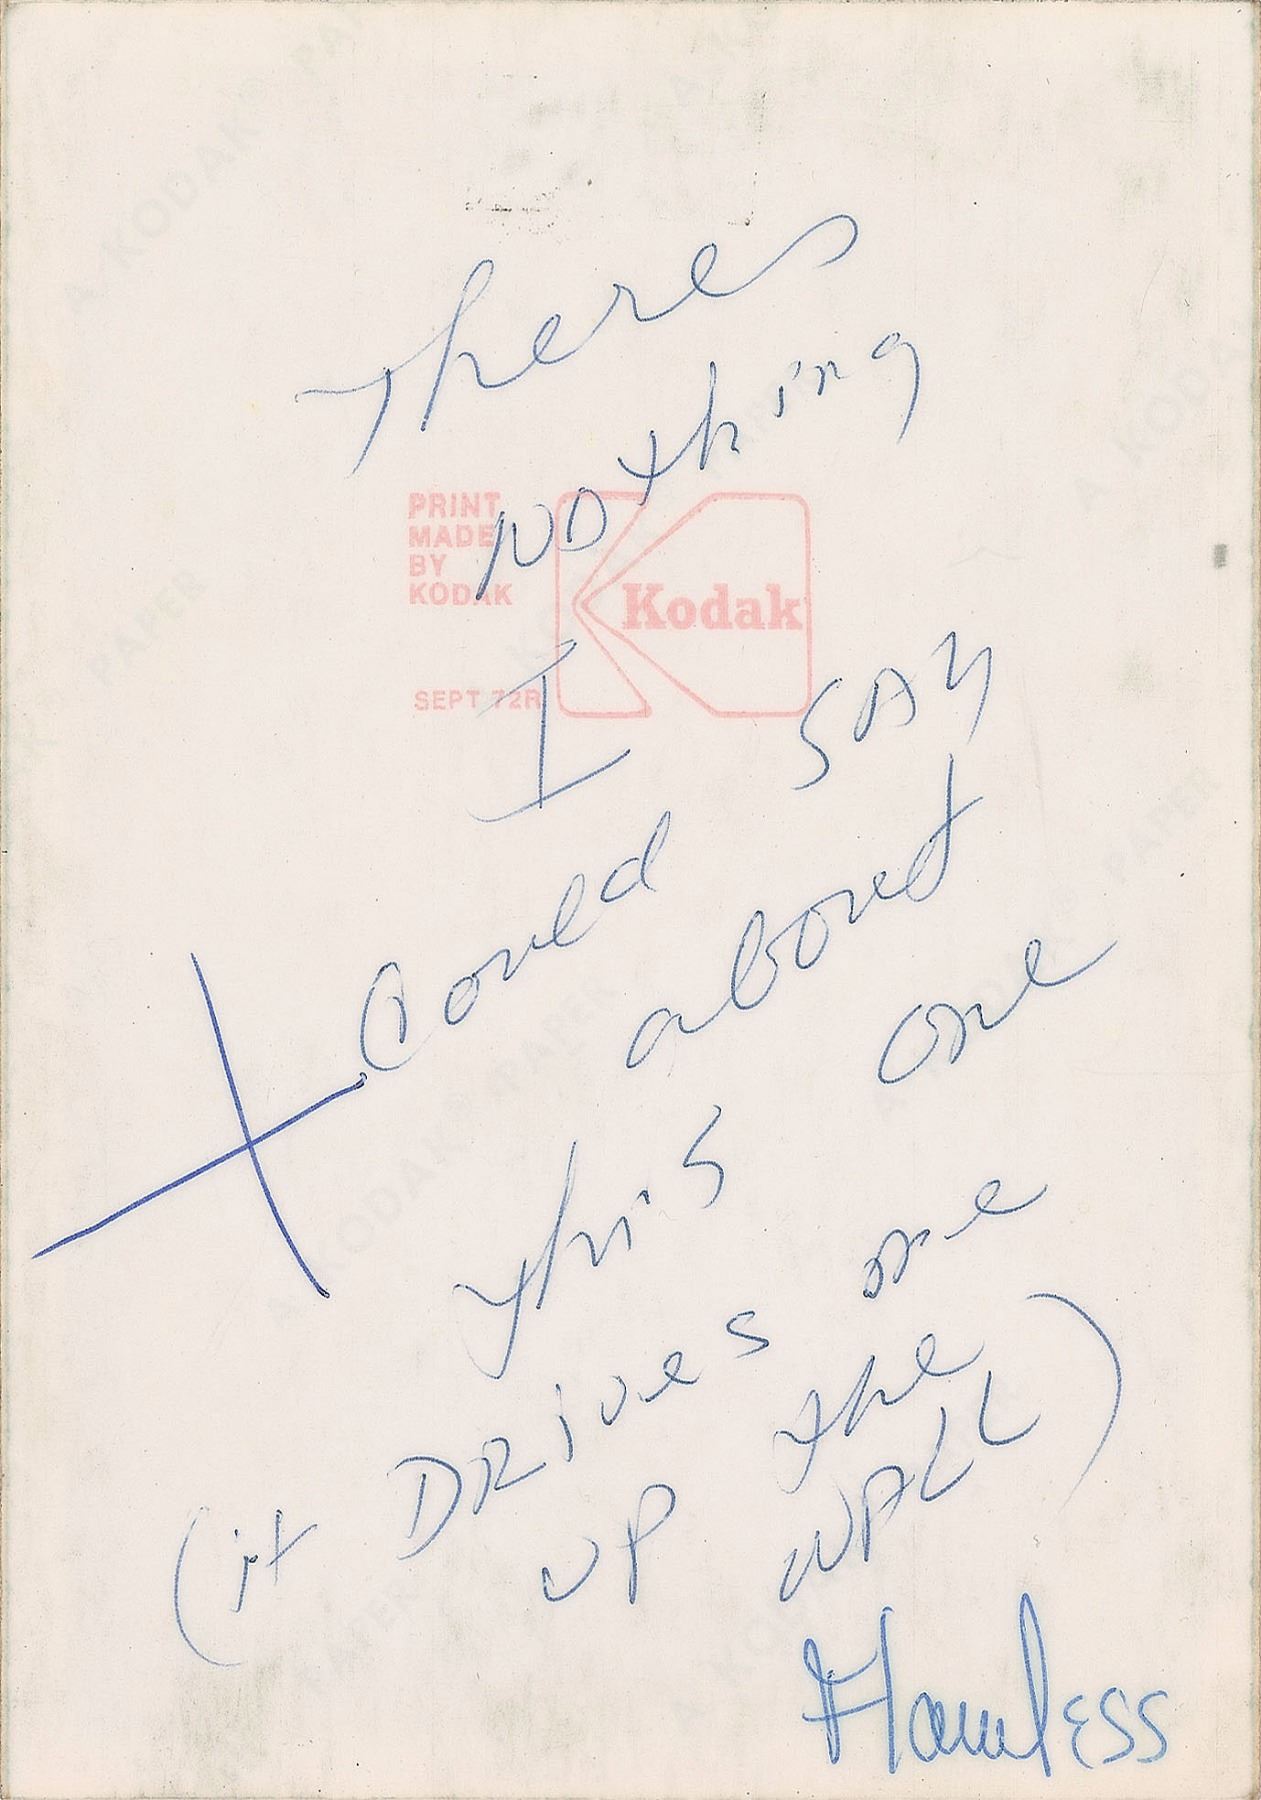 Theres
Nothing
PRINT
MADE
BY
KODAK
Kodak
SEPT 72R
I SAY
Could about
This one
(it DRives me
UP the
WALL)
Flawless